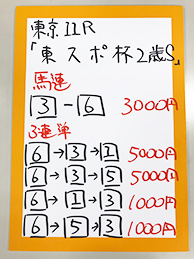 東京11R
「東スポ杯2歳S」
馬連
3-6 3000円
3連単
6→3→1 5000円
6→3→5 5000円
6→1→3 1000円
6→5→3 1000円